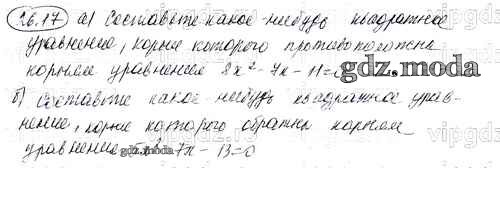 26.17 а) Составьте какое-нибудь квадратное
уравнение, корни которого противоположны
корням уравнения 8x² - 7x - 11=0
gdz.moda
б) Составьте какое нибудь квадратное урав-
нение, корни которого обратны корням
уравнения 7x - 13=0
gdz.moda